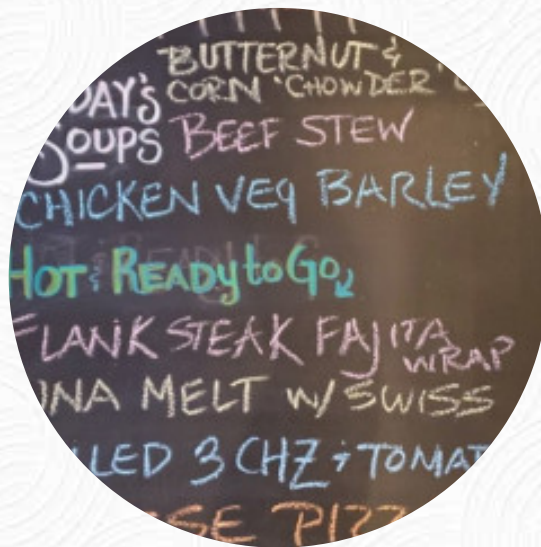 BUTTERNUT &
DAY'S CORN 'CHOWDER'
SOUPS BEEF STEW
CHICKEN VEG BARLEY
HOT & READY to GO
FLANK STEAK FAJITA
WRAP
UNA MELT W/ SWISS
LLED 3 CHZ & TOMAT
SE PIZZ